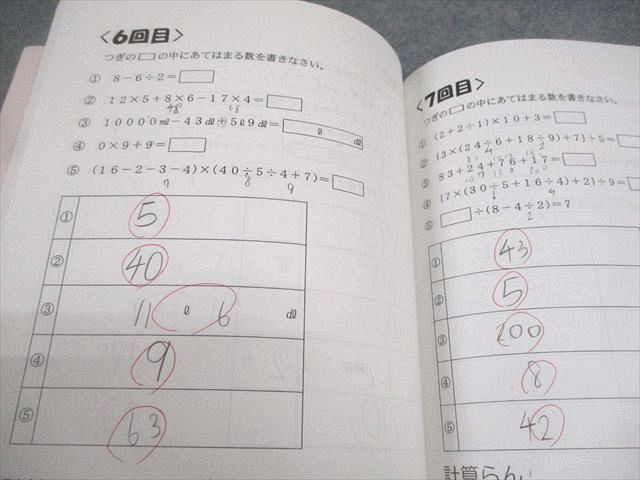 〈6回目〉
つぎの□の中にあてはまる数を書きなさい。
① 8－6÷2＝□
② 12×5＋8×6－17×4＝□
48 68
③ 10000㎖－43㎗＋5ℓ9㎗＝□ ℓ ㎗
④ 0×9＋9＝□
⑤ (16－2－3－4)×(40÷5÷4＋7)＝□
7 8 9
① 5
② 40
③ 11 ℓ 6 ㎗
④ 9
⑤ 63
〈7回目〉
つぎの□の中にあてはまる数を書きなさい。
① (2＋2÷1)×10＋3＝□
② {3×(24÷6＋18÷9)＋7}÷5＝□
4 2
③ 83＋24＋76＋17＝□
④ {7×(30÷5＋16÷4)＋2}÷9＝□
6 4
⑤ □÷(8－4÷2)＝7
2
① 43
② 5
③ 200
④ 8
⑤ 42
計算らん